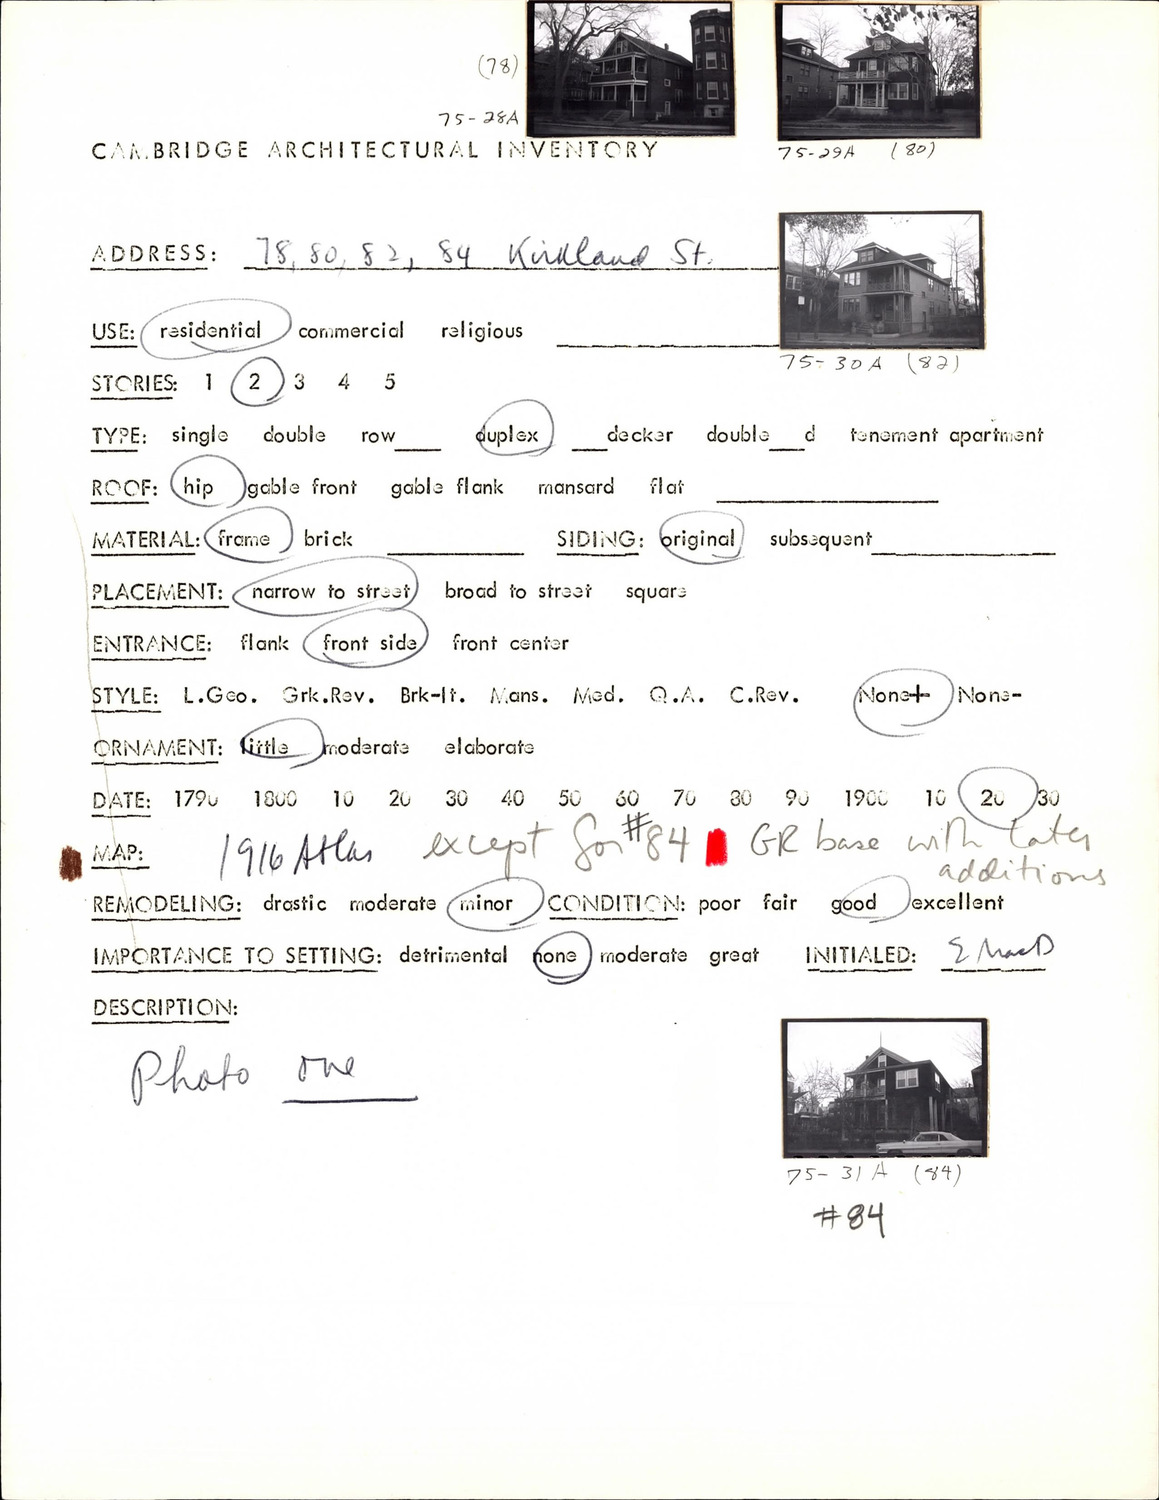 (78)
75-28A
75-29A (80)
CAMBRIDGE ARCHITECTURAL INVENTORY
ADDRESS: 78, 80, 82, 84 Kirkland St.
75-30A (82)
USE: residential commercial religious
STORIES: 1 2 3 4 5
TYPE: single double row___ duplex ___decker double___d tenement apartment
ROOF: hip gable front gable flank mansard flat
MATERIAL: frame brick SIDING: original subsequent
PLACEMENT: narrow to street broad to street square
ENTRANCE: flank front side front center
STYLE: L.Geo. Grk.Rev. Brk-It. Mans. Med. Q.A. C.Rev. None+ None-
ORNAMENT: little moderate elaborate
DATE: 1790 1800 10 20 30 40 50 60 70 80 90 1900 10 20 30
MAP: 1916 Atlas except for #84 GR base with later
additions
REMODELING: drastic moderate minor CONDITION: poor fair good excellent
IMPORTANCE TO SETTING: detrimental none moderate great INITIALED: E MacD
DESCRIPTION:
Photo one
75-31A (84)
#84